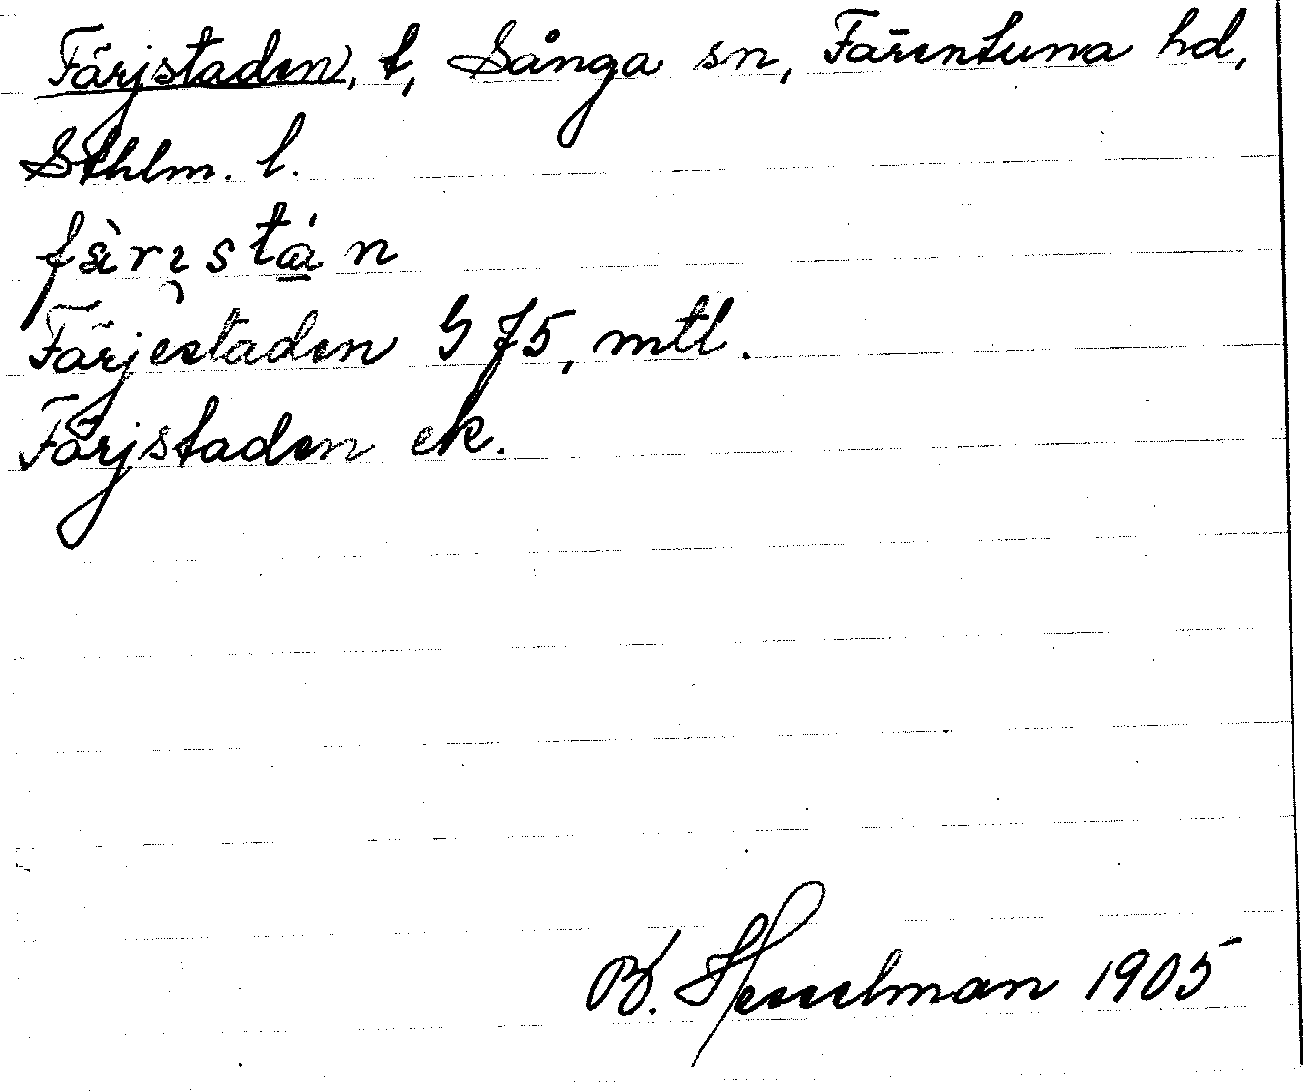 Färjstaden, t, Sånga sn, Färentuna hd,
Sthlm. l.
Färjestaden G 75, mtl.
Färjstaden ek.
B. Hesselman 1905